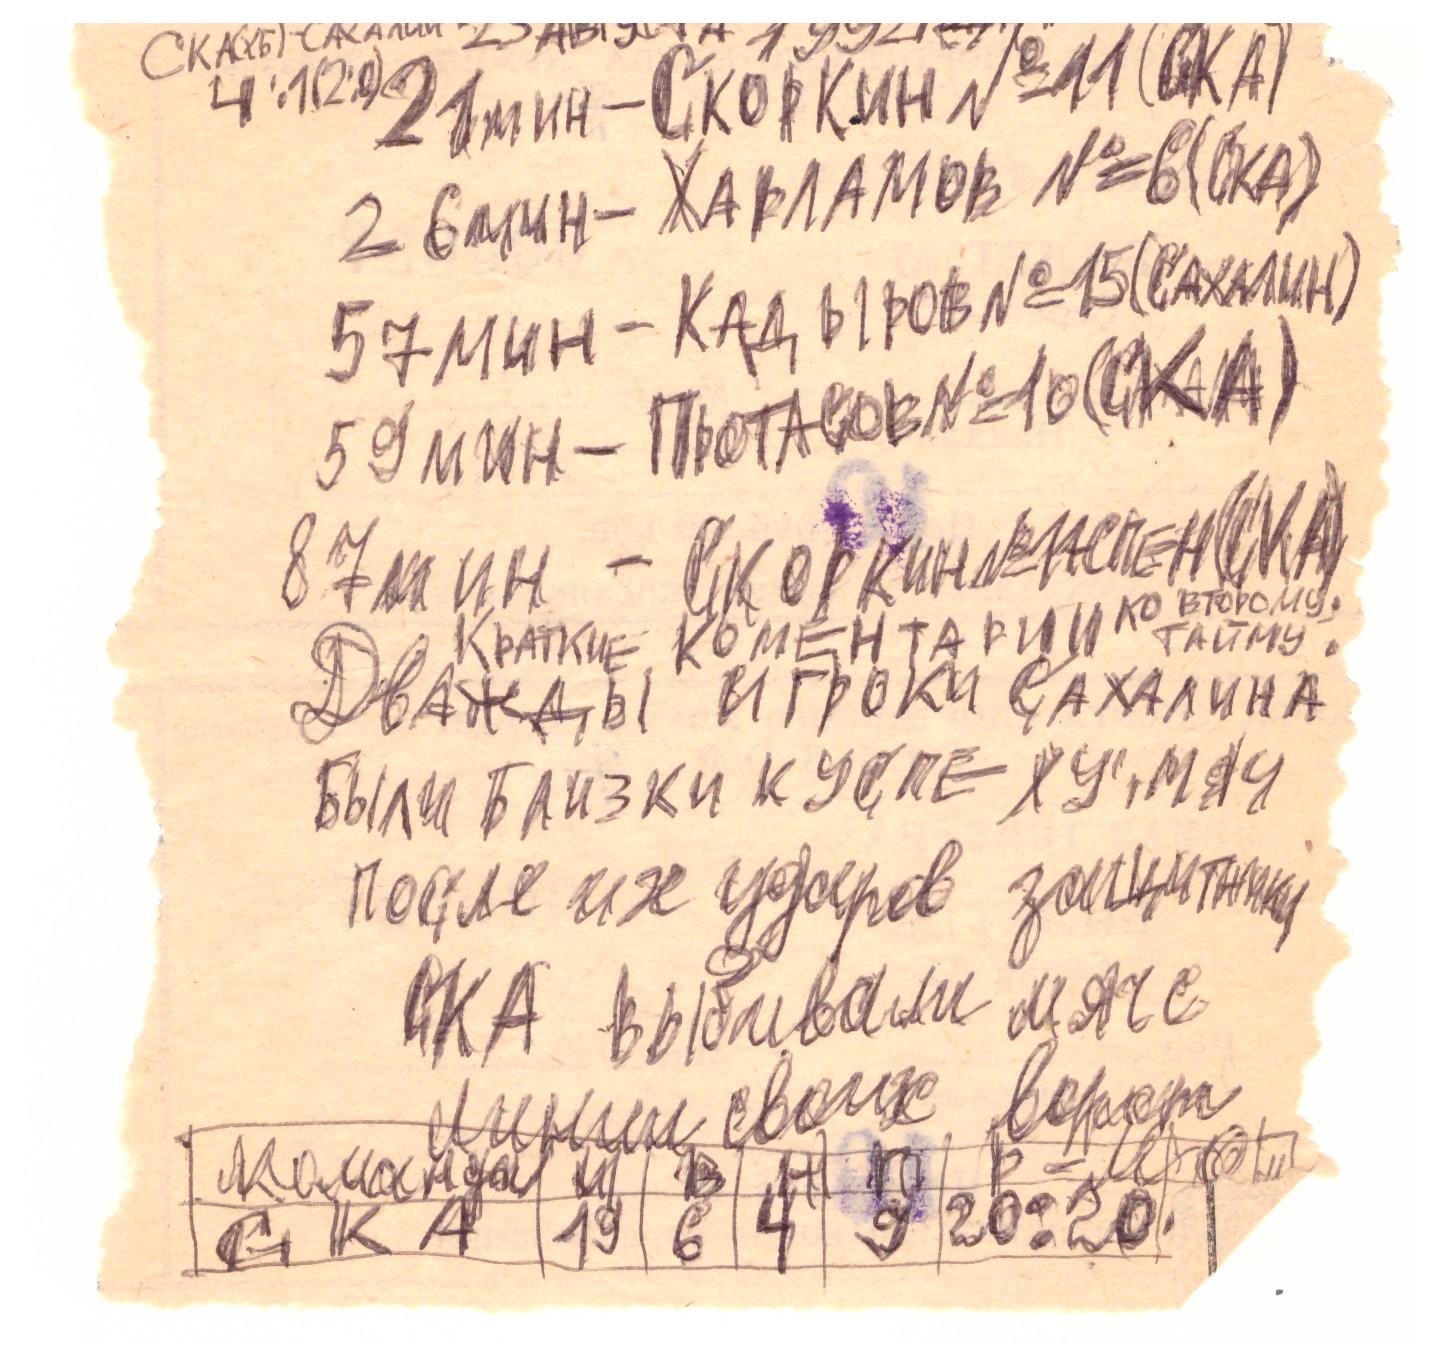 СКА(ХБ)-САХАЛИН-23 АВГУСТА 1992
4:1(2:0)
21 мин – СКОРКИН №11 (СКА)
26 мин – ХАРЛАМОВ №6 (СКА)
57 МИН – КАДЫРОВ №15 (САХАЛИН)
59 МИН – ПРОТАСОВ №10 (СКА)
87 мин – СКОРКИН №11 СПЕН (СКА)
КРАТКИЕ КОМЕНТАРИИ КО ВТОРОМУ
ТАЙМУ:
ДВАЖДЫ ИГРОКИ САХАЛИНА
БЫЛИ БЛИЗКИ К УСПЕ-ХУ, МЯЧ
после их ударов защитники
СКА выбивали мяч с
линии своих ворот
команды И В Н П Р-М О
СКА 19 6 4 9 20:20.